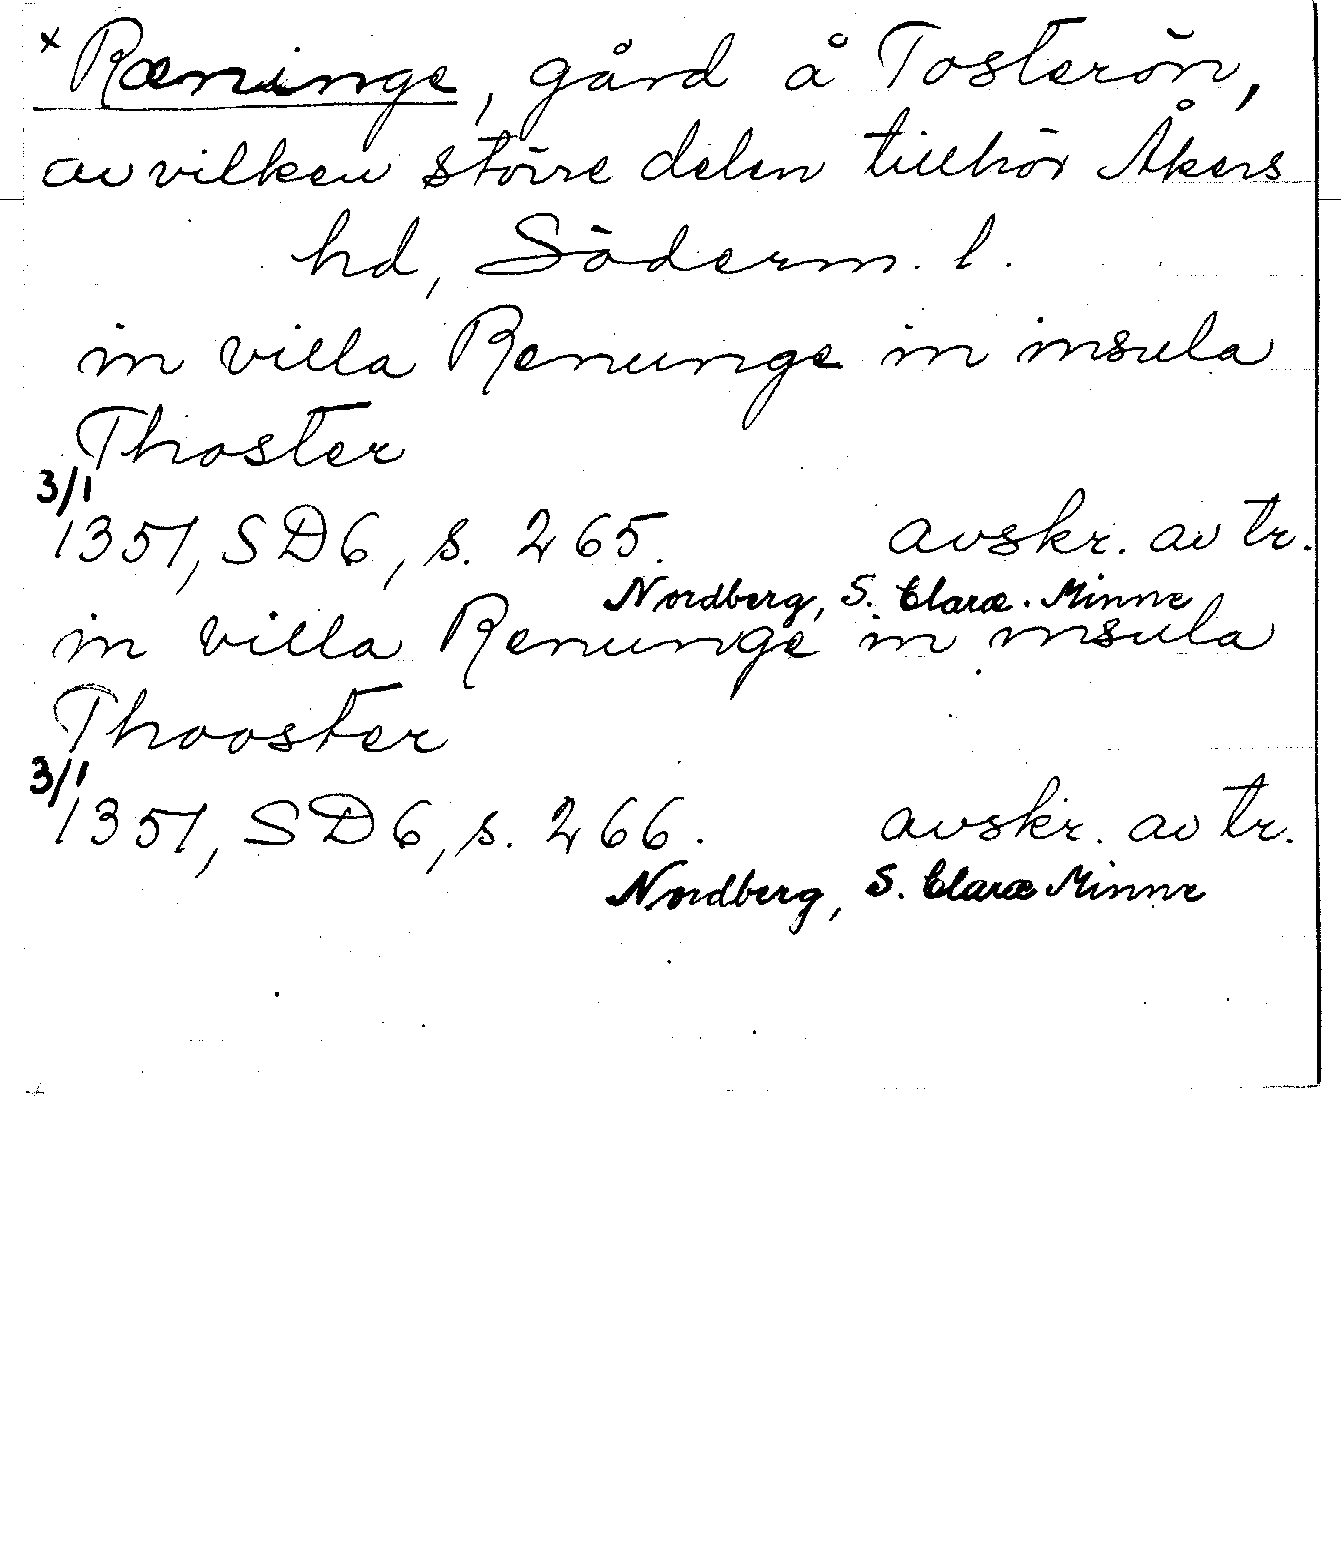 x Ræninge, gård å Tosterön,
av vilken större delen tillhör Åkers
hd, Söderm. l.
in villa Renunge in insula
Thoster
3/1
1351, SD6, s. 265. avskr. av tr.
Nordberg, S. Claræ. Minne
in villa Renunge in insula
Thooster
3/1
1351, SD6, s. 266. avskr. av tr.
Nordberg, S. Claræ Minne